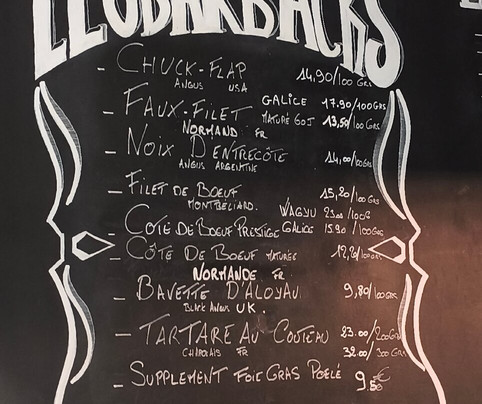 LEOBARBACKS
- CHUCK-FLAP 14,90/100 GRS
ANGUS USA
- FAUX-FILET GALICE 17.90/100GRS
MATURÉ 60J 13,50/100GRS
NORMAND FR
- NOIX D'ENTRECÔTE 14,00/100GRS
ANGUS ARGENTINE
- FILET DE BOEUF 15,20/100GRS
MONTBÉLIARD. WAGYU 23.00/100G
- COTE DE BOEUF PRESTIGE GALICE 15.90/100GRS
- CÔTE DE BOEUF MATURÉE
NORMANDE FR
- BAVETTE D'ALOYAU 9,80/100GRS
BLACK ANGUS UK.
- TARTARE AU COUTEAU 23.00/200GRS
CHAROLAIS FR 32.00/300GRS
- SUPPLEMENT FOIE GRAS POELÉ 9.50€